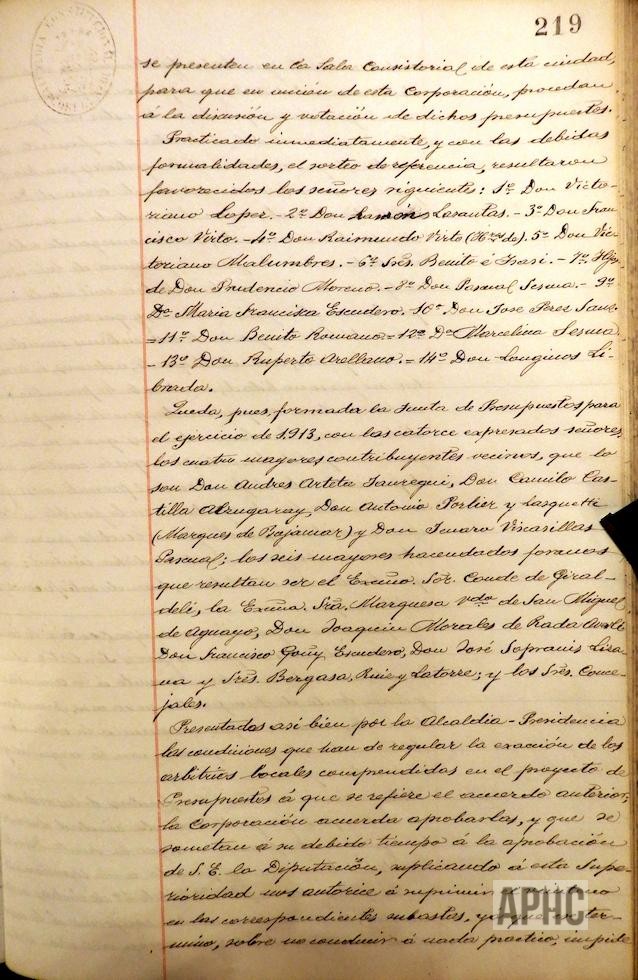 219
se presenten en la Sala Consistorial de esta ciudad,
para que en unión de esta Corporación, procedan
á la discusión y votación de dichos presupuestos.
Practicado inmediatamente, y con las debidas
formalidades, el sorteo de referencia, resultaron
favorecidos los señores siguientes: 1º Don Victo-
riano Lopez.- 2º Don Ramón Lasantas.- 3º Don Fran
cisco Virto.- 4º Don Raimundo Virto (Hros de). 5º Don Vic-
toriano Malumbres.- 6º Sres. Benito é Isasi.- 7º
de Don Prudencio Moreno.- 8º Don Pascual Sesma.- 9º
Dª Maria Francisca Escudero. 10º Don Jose Perez Sanz.
=11º Don Benito Romano=12º Dª Marcelina Sesma.
-13º Don Ruperto Arellano.=14º Don Longinos Li-
brada.
Queda, pues, formada la Junta de Presupuestos para
el ejercicio de 1.913, con los catorce expresados señores,
los cuatro mayores contribuyentes vecinos, que lo
son Don Andres Arteta Jauregui, Don Camilo Cas-
tilla Don Antonio Porlier y Lasquetti
(Marques de Bajamar) y Don Genaro Viscasillas
Pascual; los seis mayores hacendados foranos
que resultan ser el Excmo. Sor. Conde de Giral-
deli, la Excma. Sra. Marquesa vda de San Miguel
de Aguayo, Don Joaquin Morales de Rada
Don Francisco Goñy Escudero, Don José Sopranis Liza-
na y Sres. Bergasa, Ruiz y Latorre; y los Sres. Conce-
jales.
Presentadas asi bien por la Alcaldia-Presidencia
las condiciones que han de regular la exacción de los
arbitrios locales comprendidos en el proyecto de
Presupuestos á que se refiere el acuerdo anterior;
la Corporación acuerda aprobarlas, y que se
sometan á su debido tiempo á la aprobación
de S. E. la Diputación, suplicando á esta Supe-
rioridad nos autorice á suprimir el
en las correspondientes subastas, ya que este ter-
mino, sobre no conducir á nada practico, impide
APHC